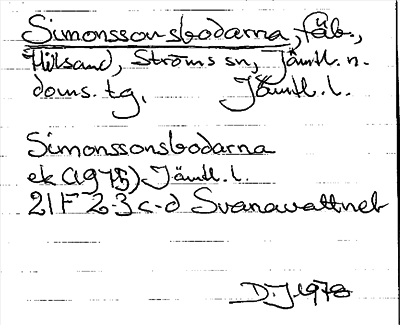 Simonssonsbodarna, fäb.,
Hillsand, Ströms sn, Jämtl. n.
doms. tg. Jämtl. l.
Simonssonsbodarna
ek (1975) Jämtl. l.
21F 2-3 c-d Svanavattnet
D.J. 1978